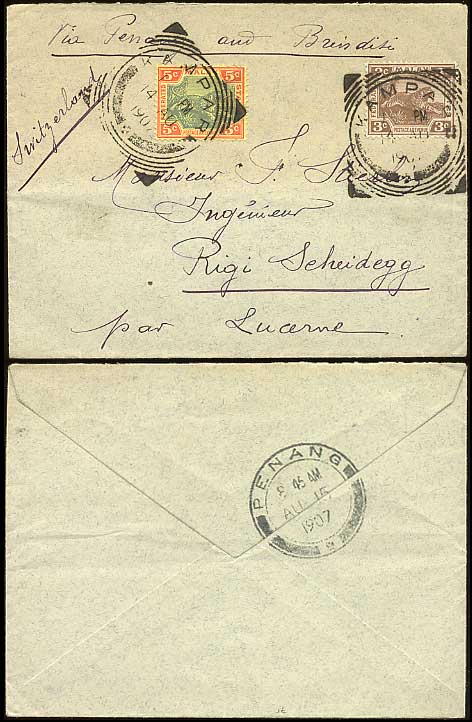 Via Penang and Brindisi
Switzerland
KAMPAR
PM
14 AU
1907
5c MALAY 5c
FEDERATED STATES
KAMPAR
PM
14 AU
190
3c MALAY
FEDERATED
POSTAGE & REVENUE
3c
Monsieur F.
Ingénieur
Rigi Scheidegg
par Lucerne.
PENANG
8 45 AM
AU 15
1907